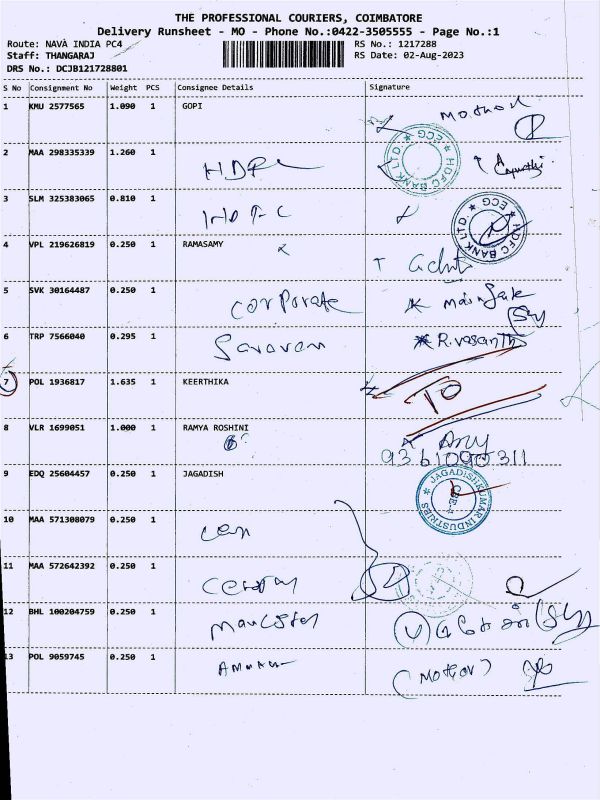 THE PROFESSIONAL COURIERS, COIMBATORE
Delivery Runsheet - MO - Phone No.:0422-3505555 - Page No.:1
Route: NAVA INDIA PC4 RS No.: 1217288
Staff: THANGARAJ RS Date: 02-Aug-2023
DRS No.: DCJB121728801
S No Consignment No Weight PCS Consignee Details Signature
1 KMU 2577565 1.090 1 GOPI
HDFC BANK LTD. ★ ECG ★
2 MAA 298335339 1.260 1 HDFC
3 SLM 325383065 0.810 1 HDFC
HDFC BANK LTD. ★ ECG ★
4 VPL 219626819 0.250 1 RAMASAMY
5 SVK 30164487 0.250 1 corporate
6 TRP 7566040 0.295 1 Saravan R.vasanth
7 POL 1936817 1.635 1 KEERTHIKA TO
8 VLR 1699051 1.000 1 RAMYA ROSHINI
9361090311
9 EDQ 25604457 0.250 1 JAGADISH
★ JAGADISHKUMAR INDUSTRIES ★ CBE.
10 MAA 571308079 0.250 1
11 MAA 572642392 0.250 1
12 BHL 100204759 0.250 1
13 POL 9059745 0.250 1 (Mother)